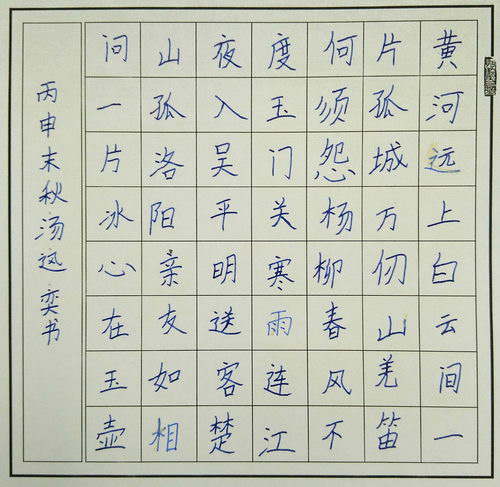 黄河远上白云间一
片孤城万仞山羌笛
何须怨杨柳春风不
度玉门关寒雨连江
夜入吴平明送客楚
山孤洛阳亲友如相
问一片冰心在玉壶
丙申末秋汤迅奕书